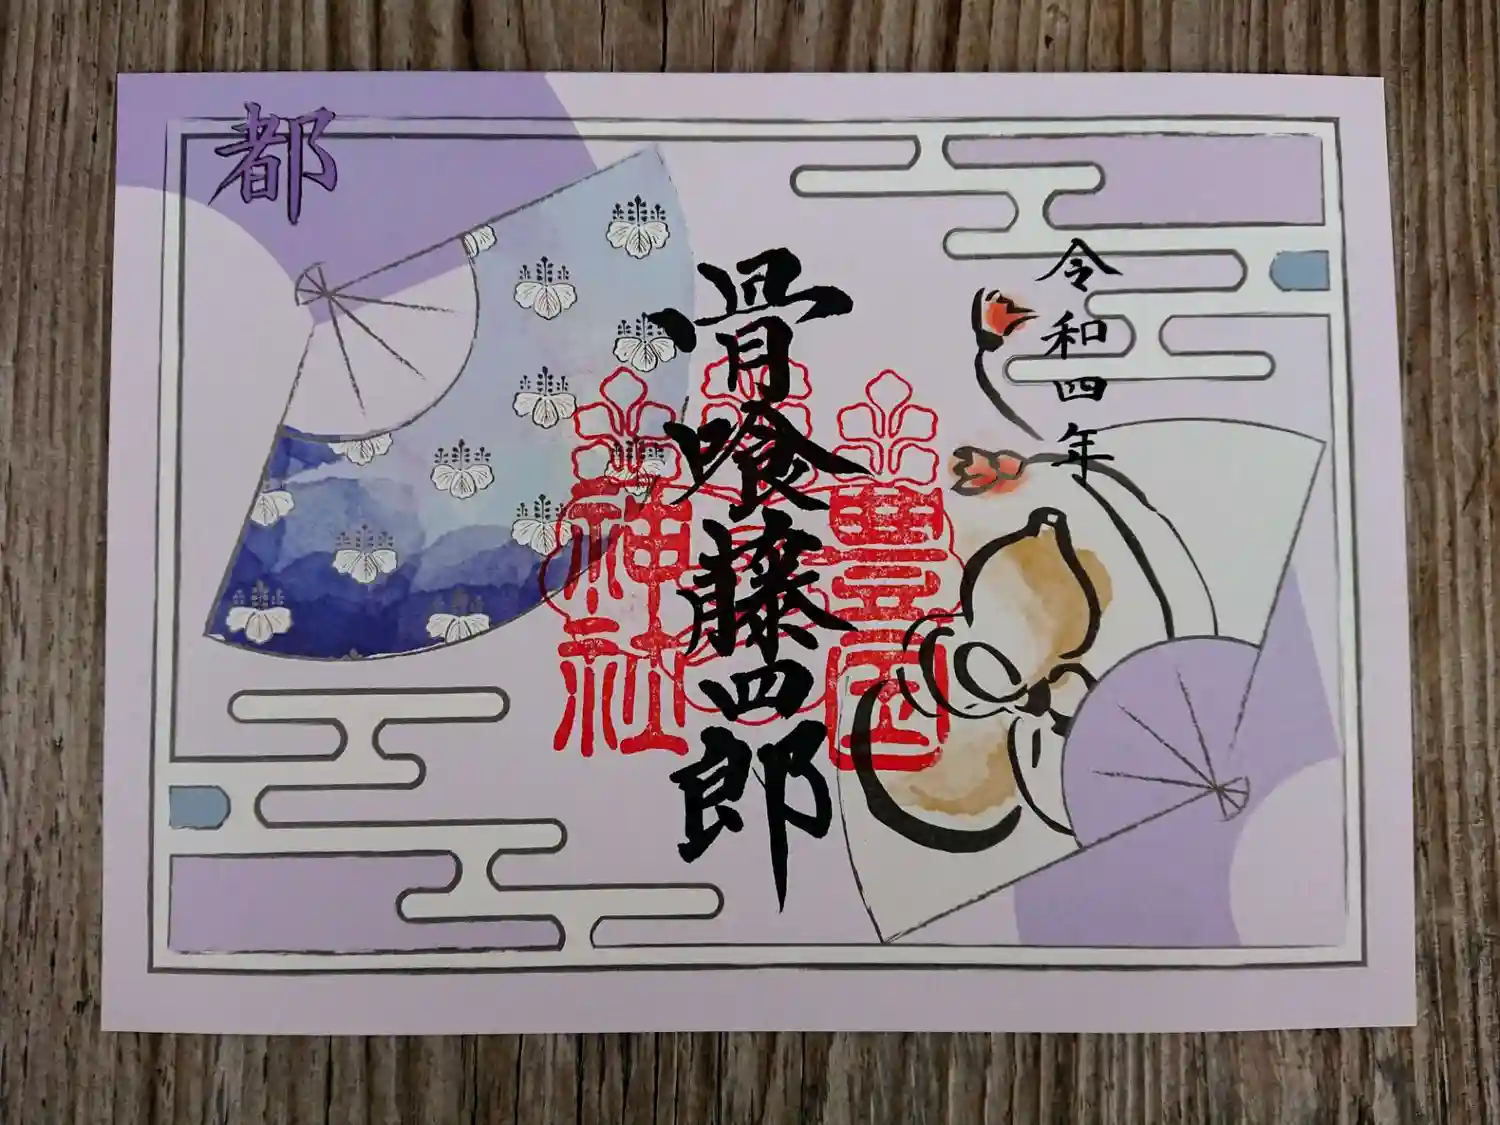 令和四年
骨喰藤四郎
豊国
神社
都